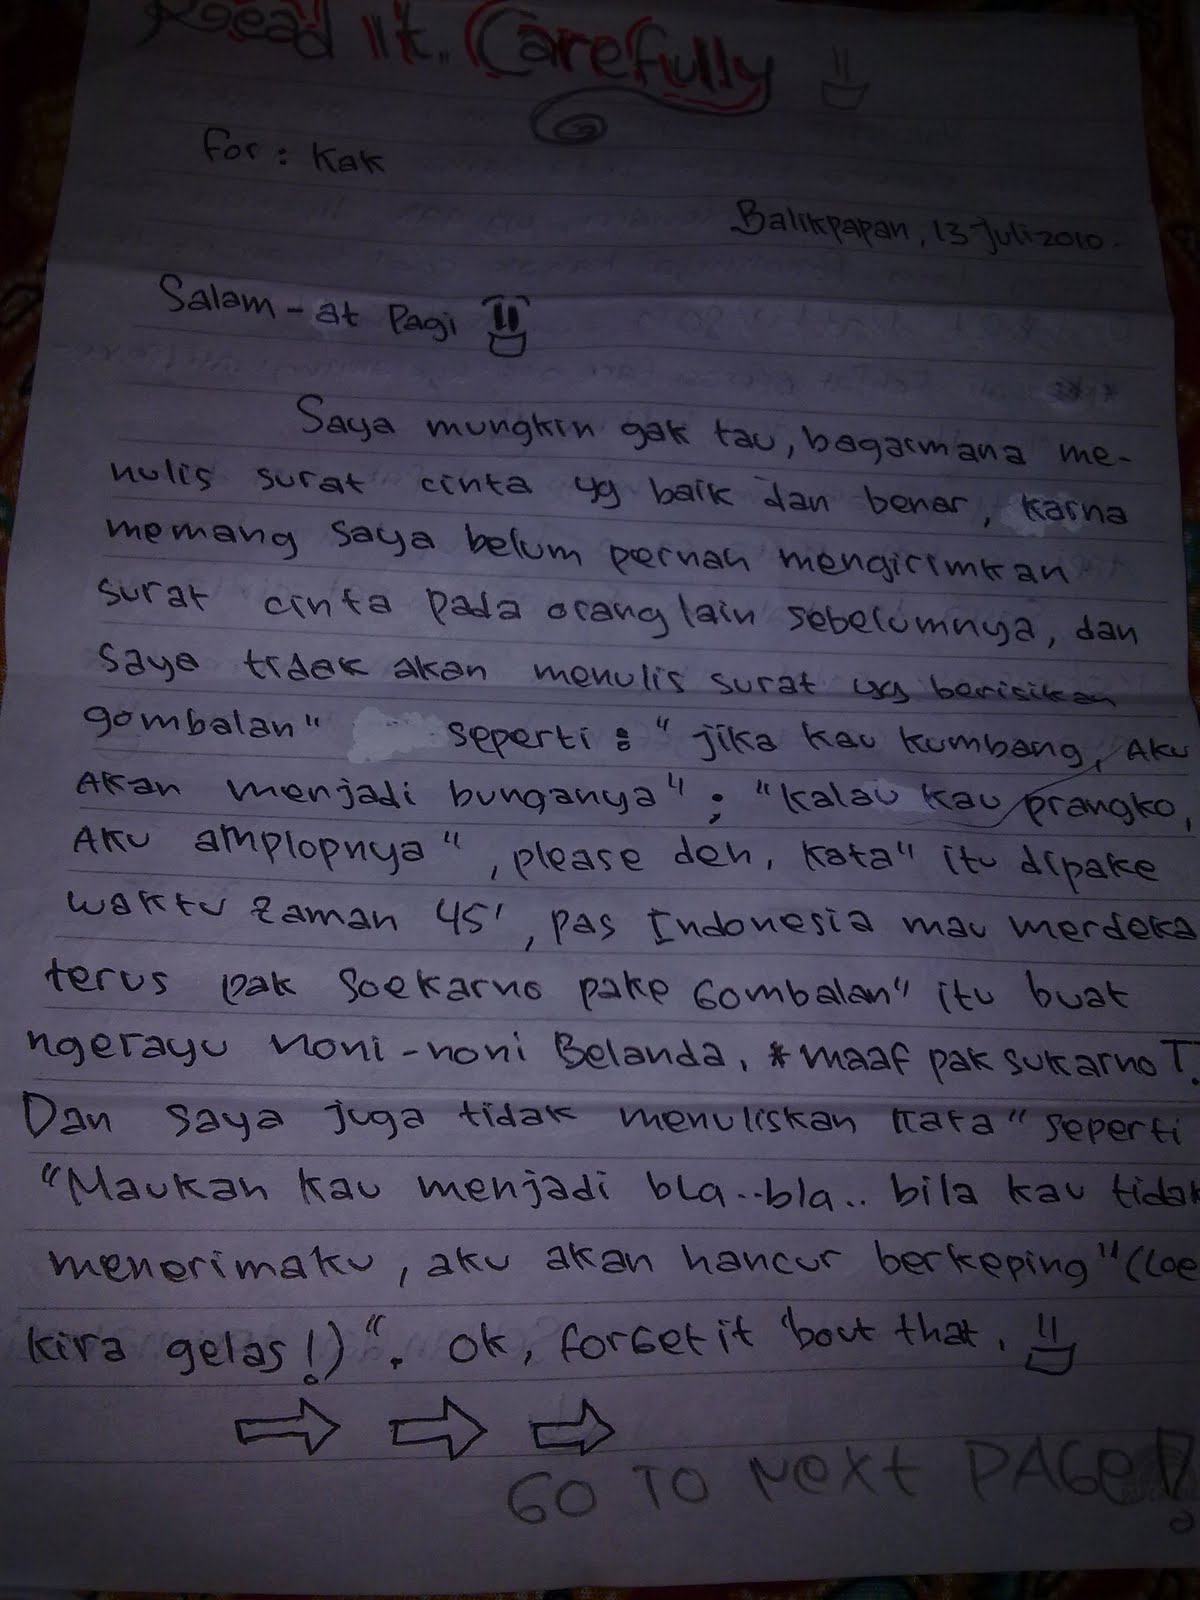 Read It. Carefully
For : Kak
Balikpapan, 13 Juli 2010.
Salam - at Pagi
Saya mungkin gak tau, bagaimana me-
nulis surat cinta yg baik dan benar, karna
memang saya belum pernah mengirimkan
surat cinta pada orang lain sebelumnya, dan
saya tidak akan menulis surat yg berisikan
gombalan" seperti : "jika kau kumbang, Aku
Akan menjadi bunganya" ; "kalau kau prangko,
Aku amplopnya", please deh, kata" itu dipake
waktu zaman 45', pas Indonesia mau merdeka
terus pak Soekarno pake Gombalan" itu buat
ngerayu noni-noni Belanda, *maaf pak sukarno T.
Dan saya juga tidak menuliskan kata" seperti
"Maukah kau menjadi bla..bla.. bila kau tidak
menerimaku, aku akan hancur berkeping" (loe
kira gelas!)". ok, forget it 'bout that.
GO TO NeXt PAGe!